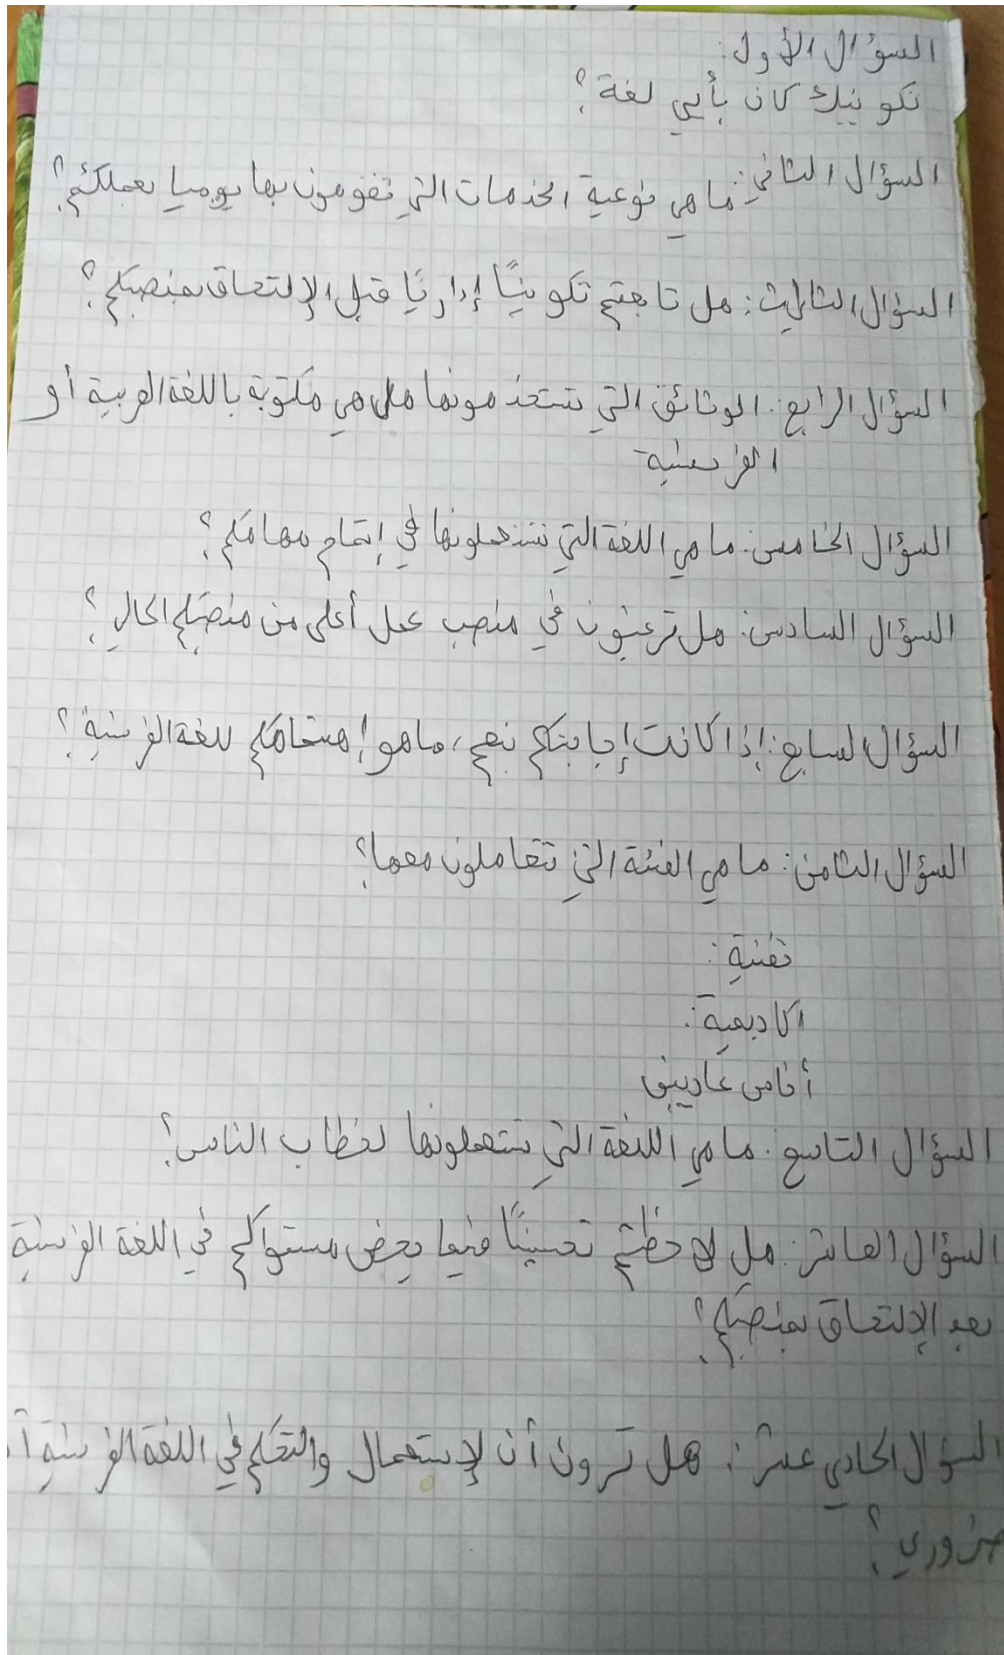 السؤال الأول:
تكوينك كان بأي لغة؟
السؤال الثاني: ما هي نوعية الخدمات التي تقومون بها يوميا بعملكم؟
السؤال الثالث: هل تابعتم تكوينًا إداريًا قبل الإلتحاق بمنصبكم؟
السؤال الرابع: الوثائق التي تستخدمونها هل هي مكتوبة باللغة العربية أو
الفرنسية
السؤال الخامس: ما هي اللغة التي تستعملونها في إتمام مهامكم؟
السؤال السادس: هل ترغبون في منصب عمل أعلى من منصبكم الحالي؟
السؤال السابع: إذا كانت إجابتكم بنعم، ما هو إهتمامكم للغة الفرنسية؟
السؤال الثامن: ما هي الفئة التي تتعاملون معها؟
تقنية:
اكاديمية:
أناس عاديين
السؤال التاسع: ما هي اللغة التي تستعملونها لخطاب الناس؟
السؤال العاشر: هل لاحظتم تحسينًا فيما يخص مستواكم في اللغة الفرنسية
بعد الإلتحاق بمنصبكم؟
السؤال الحادي عشر: هل ترون أن لإستعمال والتحكم في اللغة الفرنسية
ضروري؟